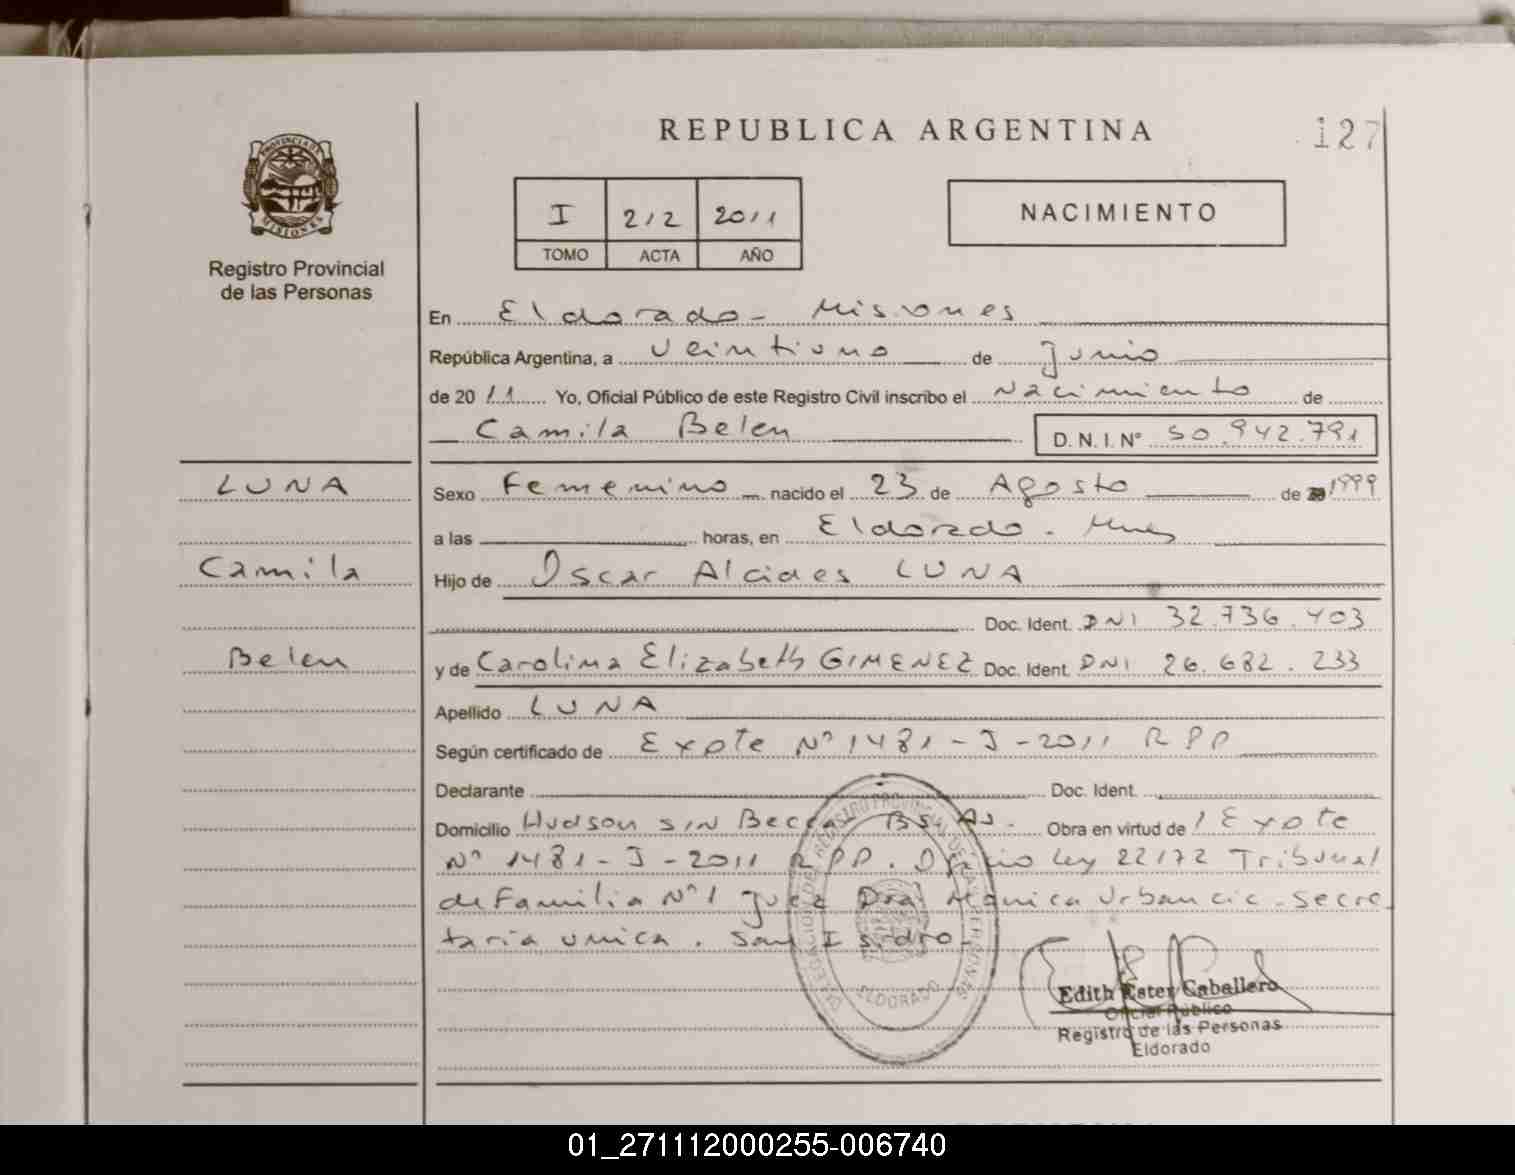 REPUBLICA ARGENTINA
127
PROVINCIA DE
MISIONES
Registro Provincial
de las Personas
I 212 2011
TOMO ACTA AÑO
NACIMIENTO
En Eldorado - Misiones
República Argentina, a veintiuno de Junio
de 2011 Yo, Oficial Público de este Registro Civil inscribo el Nacimiento de
Camila Belen D. N. I. N° 50.942.791
LUNA
Camila
Belen
Sexo Femenino nacido el 23 de Agosto de 1999
a las horas, en Eldorado - Mnes
Hijo de Oscar Alcides LUNA
Doc. Ident. DNI 32.736.403
y de Carolina Elizabeth GIMENEZ Doc. Ident. DNI 26.682.233
Apellido LUNA
Según certificado de Expte N° 1481-J-2011 RPP
Declarante Doc. Ident.
Domicilio Hudson SIN Beccar BS. AS. Obra en virtud de / Expte
N° 1481-J-2011 RPP. Ley 22172 Tribunal
de Familia N° 1 Juez Dra Monica Urbancic - Secre
taria unica. San Isidro -
DELEGACION DEL REGISTRO PROVINCIAL DE LAS PERSONAS
ELDORADO
Edith Ester Caballero
Oficial Público
Registro de las Personas
Eldorado
01_271112000255-006740